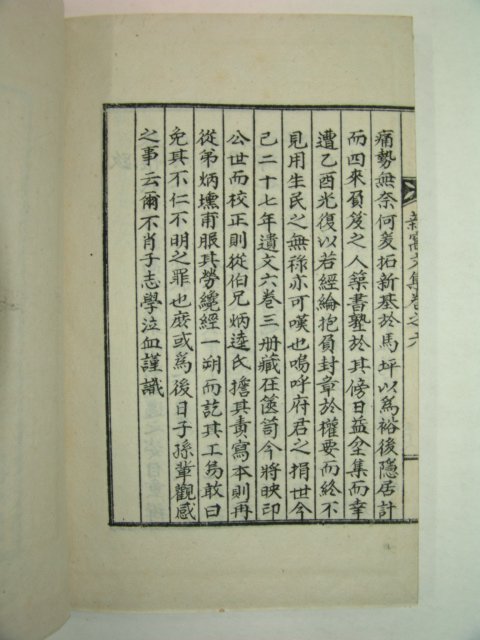 痛勢無奈何爰拓新基於馬坪以爲裕後隱居計
而四來負笈之人築書塾於其傍日益坌集而幸
遭乙酉光復以若經綸抱負封章於權要而終不
見用生民之無祿亦可嘆也嗚呼府君之捐世今
己二十七年遺文六卷三册藏在篋笥今將映印
公世而校正則從伯兄炳逵氏擔其責寫本則再
從弟炳壎甫服其勞纔經一朔而訖其工曷敢曰
免其不仁不明之罪也庶或爲後日子孫輩觀感
之事云爾不肖子志學泣血謹識
文集卷之六